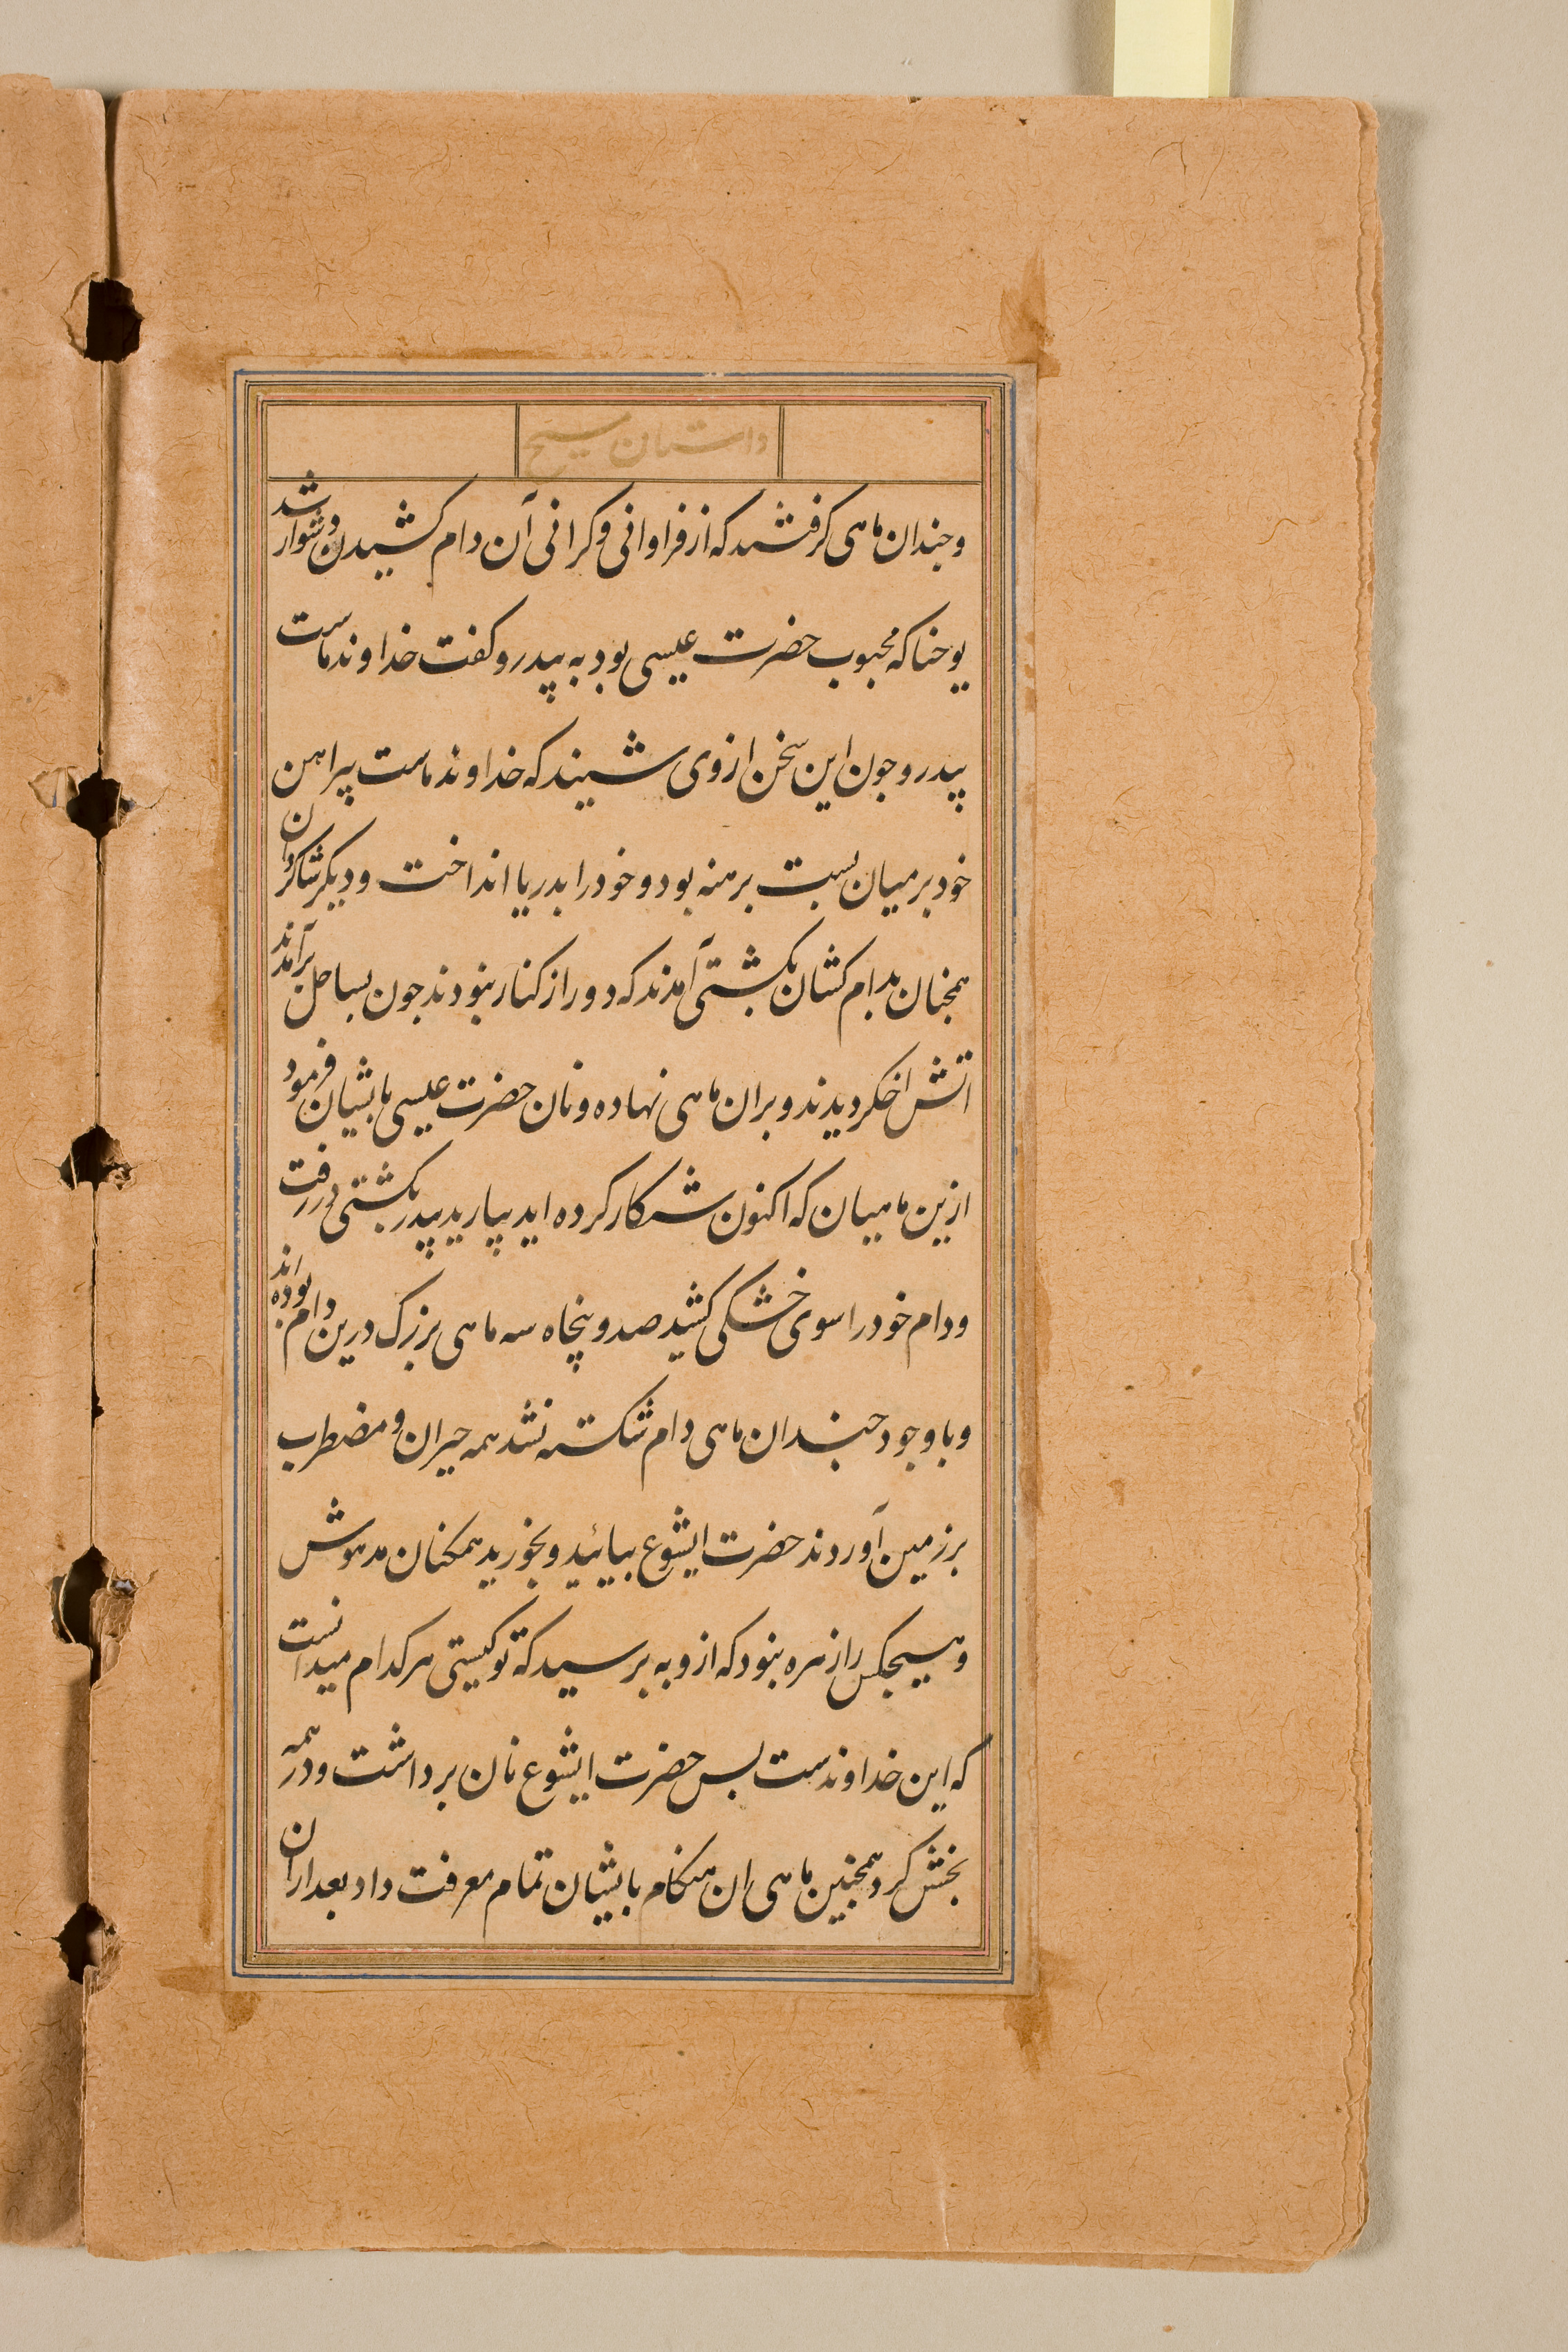 داستان مسیح
و جندان ماهی کرفتند که از فراوانی و کرانی آن دام کشیدن دشوار شد
یوحنا که محبوب حضرت عیسی بود به پیدرو کفت خداوند ماست
پیدرو جون این سخن ازوی شنید که خداوند ماست پیراهن
خود بر میان بست برهنه بود و خود را بدریا انداخت و دیکر شاکردان
همجنان بدام کشان بکشتی آمدند که دور از کنار نبودند جون بساحل برآمدند
اتش اخکر دیدند و بران ماهی نهاده و نان حضرت عیسی بایشان فرمود
ازین ماهیان که اکنون شکار کرده اید بیارید پیدر بکشتی در رفت
و دام خود را سوی خشکی کشید صد و پنجاه سه ماهی بزرک درین دام بوده اند
و با وجود جندان ماهی دام شکسته نشد همه حیران و مضطرب
بر زمین آوردند حضرت ایشوع بیائید و بخورید همکنان مدهوش
و هیجکس را زهره نبود که ازو به برسید که تو کیستی هر کدام میدانست
که این خداوندست بس حضرت ایشوع نان برداشت و در همه
بخش کرد همجنین ماهی ان هنکام بایشان تمام معرفت داد بعد ازان